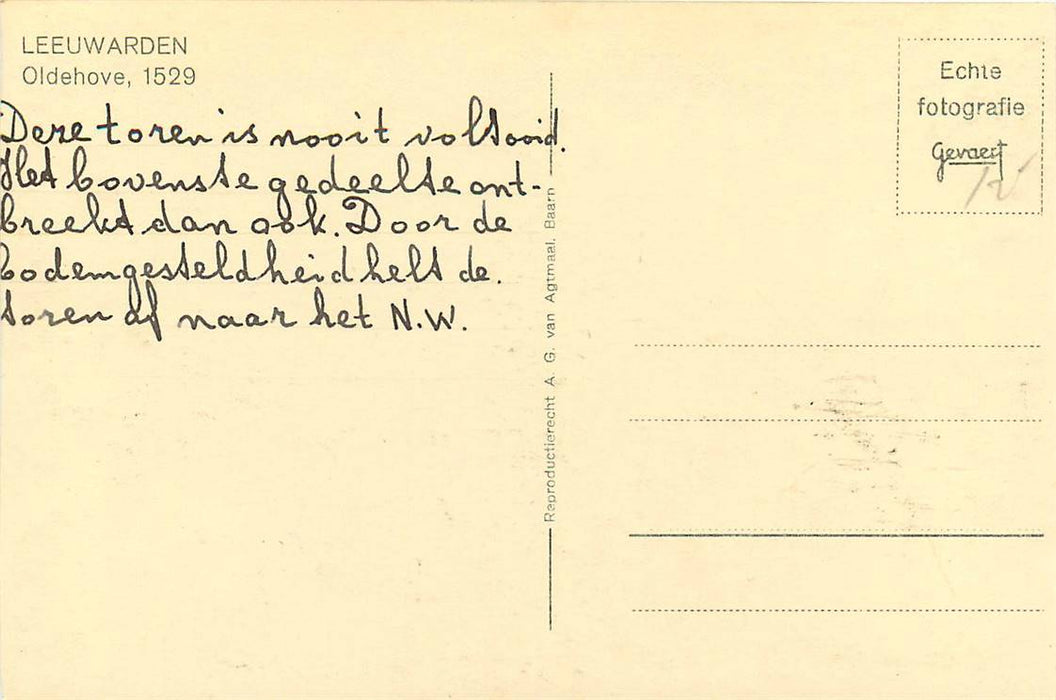 LEEUWARDEN
Oldehove, 1529
Deze toren is nooit voltooid.
Het bovenste gedeelte ont-
breekt dan ook. Door de
bodemgesteldheid helt de.
toren af naar het N.W.
Reproductierecht A. G. van Agtmaal, Baarn
Echte
fotografie
Gevaert